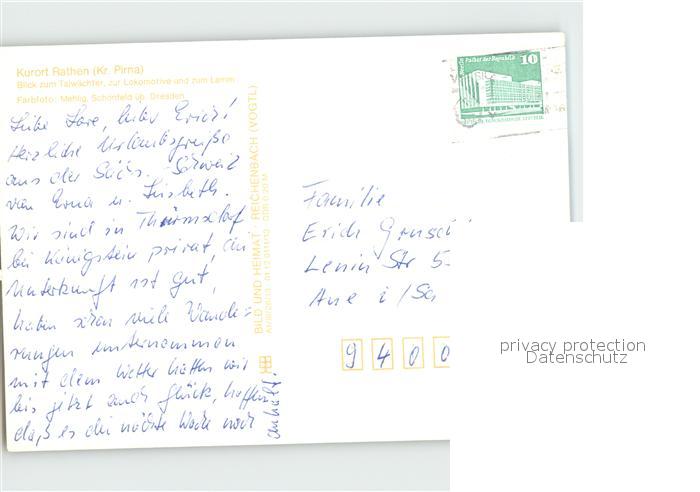 Kurort Rathen (Kr. Pirna)
Blick zum Talwächter, zur Lokomotive und zum Lamm
Farbfoto: Mehlig, Schönfeld üb. Dresden
Liebe Lore, lieber Erich!
Herzliche Urlaubsgrüße
aus der Sächs. Schweiz
von Erna u. Lisbeth.
Wir sind in Thürmsdorf
bei Königstein privat, die
Unterkunft ist gut,
haben schon viele Wande=
rungen unternommen
mit dem Wetter hatten wir
bis jetzt auch Glück, hoffen
daß es die nächste Woche noch
anhält.
BILD UND HEIMAT · REICHENBACH (VOGTL)
Palast der Republik
10
Familie
Erich
Lenin Str
Aue i/Sa
9400
privacy protection
Datenschutz